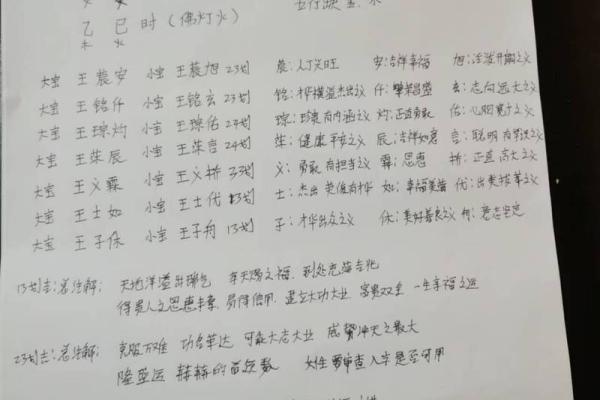 乙巳时（佛灯火）
未 火
大宝 王晨安 小宝 王晨旭 23划 晨：人丁兴旺 安：吉祥幸福 旭：
大宝 王铭仟 小宝 王铭玄 23划 铭：才模溢杰出义 仟：繁荣昌盛 玄：志向远大之义
大宝 王琼灼 小宝 王琼佑 24划 琼：有内涵义 灼：正直勇敢 佑：心胸宽广之义
大宝 王荣辰 小宝 王荣言 24划 荣：健康平安之义 辰：吉祥如意 言：聪明有学识之义
大宝 王义霖 小宝 王义桥 33划 义：勇敢有担当义 霖：恩惠 桥：正直高大之义
大宝 王士如 小宝 王士代 13划 士：杰出英俊有才华 如：幸福美满 优：出类拔萃之义
大宝 王子保 小宝 王子舟 13划 子：才华出众之义 休：美好善良之义 舟：意志坚定
13划吉：总注解：天地洋溢出瑞气 享天赐之福，到处充满吉兆
得贵人之恩惠丰富 易得信用 建立大功大业 富贵双全 一生享福之运
23划吉：总注解：克服万难 功名荣达 可能大志大业 成冲天之最大
隆盛运 赫赫的首领数 女性要审查八字是否可用